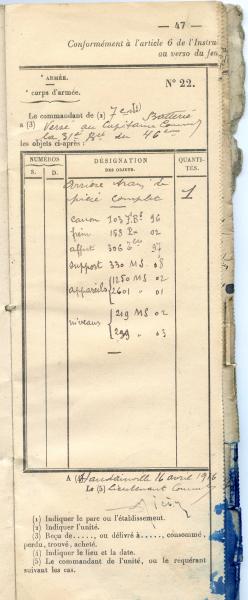 — 47 —
Conformément à l'article 6 de l'Instru
ou verso du feu
e ARMÉE.
e corps d'armée.
N° 22.
Le commandant de (2) 7e Batterie
a (3) Versé au Capitaine Comm
la 31e Bie du 46em
les objets ci-après :
NUMÉROS DÉSIGNATION QUANTI-
S. D. DES OBJETS. TÉS.
Arrière train de
pièce complet 1
canon 103 96
frein 158 02
affut 306 96
support 330 MS 08
appareils 1250 MS 02
2601 " 01
niveaux 219 MS 02
299 " 03
A (4) 16 avril 1916
Le (5) Lieutenant Comm
(1) Indiquer le parc ou l'établissement.
(2) Indiquer l'unité.
(3) Reçu de....., ou délivré à....., consommé,
perdu, trouvé, acheté.
(4) Indiquer le lieu et la date.
(5) Le commandant de l'unité, ou le requérant
suivant les cas.